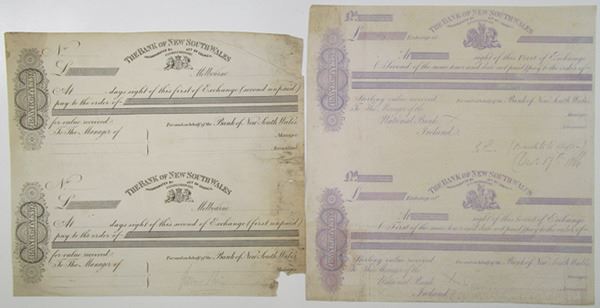 No
THE BANK OF NEW SOUTH WALES
£
Melbourne
At days sight of this first of Exchange (second unpaid)
pay to the order of
for value received
To The Manager of
For and on behalf of the Bank of New South Wales
Manager
Accountant
No
THE BANK OF NEW SOUTH WALES
£
Melbourne
At days sight of this second of Exchange (first unpaid)
pay to the order of
for value received
To The Manager of
For and on behalf of the Bank of New South Wales
No
THE BANK OF NEW SOUTH WALES
£ Exchange at
At sight of this First of Exchange
(Second of the same tenor and date not paid) pay to the order of
Sterling value received
For and on behalf of the Bank of New South Wales
To The Manager of the
National Bank
Ireland
Manager
Accountant
THE BANK OF NEW SOUTH WALES
£ Exchange at
At sight of this Second of Exchange
First of the same tenor and date not paid) pay to the order of
Sterling value received
For and on behalf of the Bank of New South Wales
To The Manager of the
National Bank
Ireland